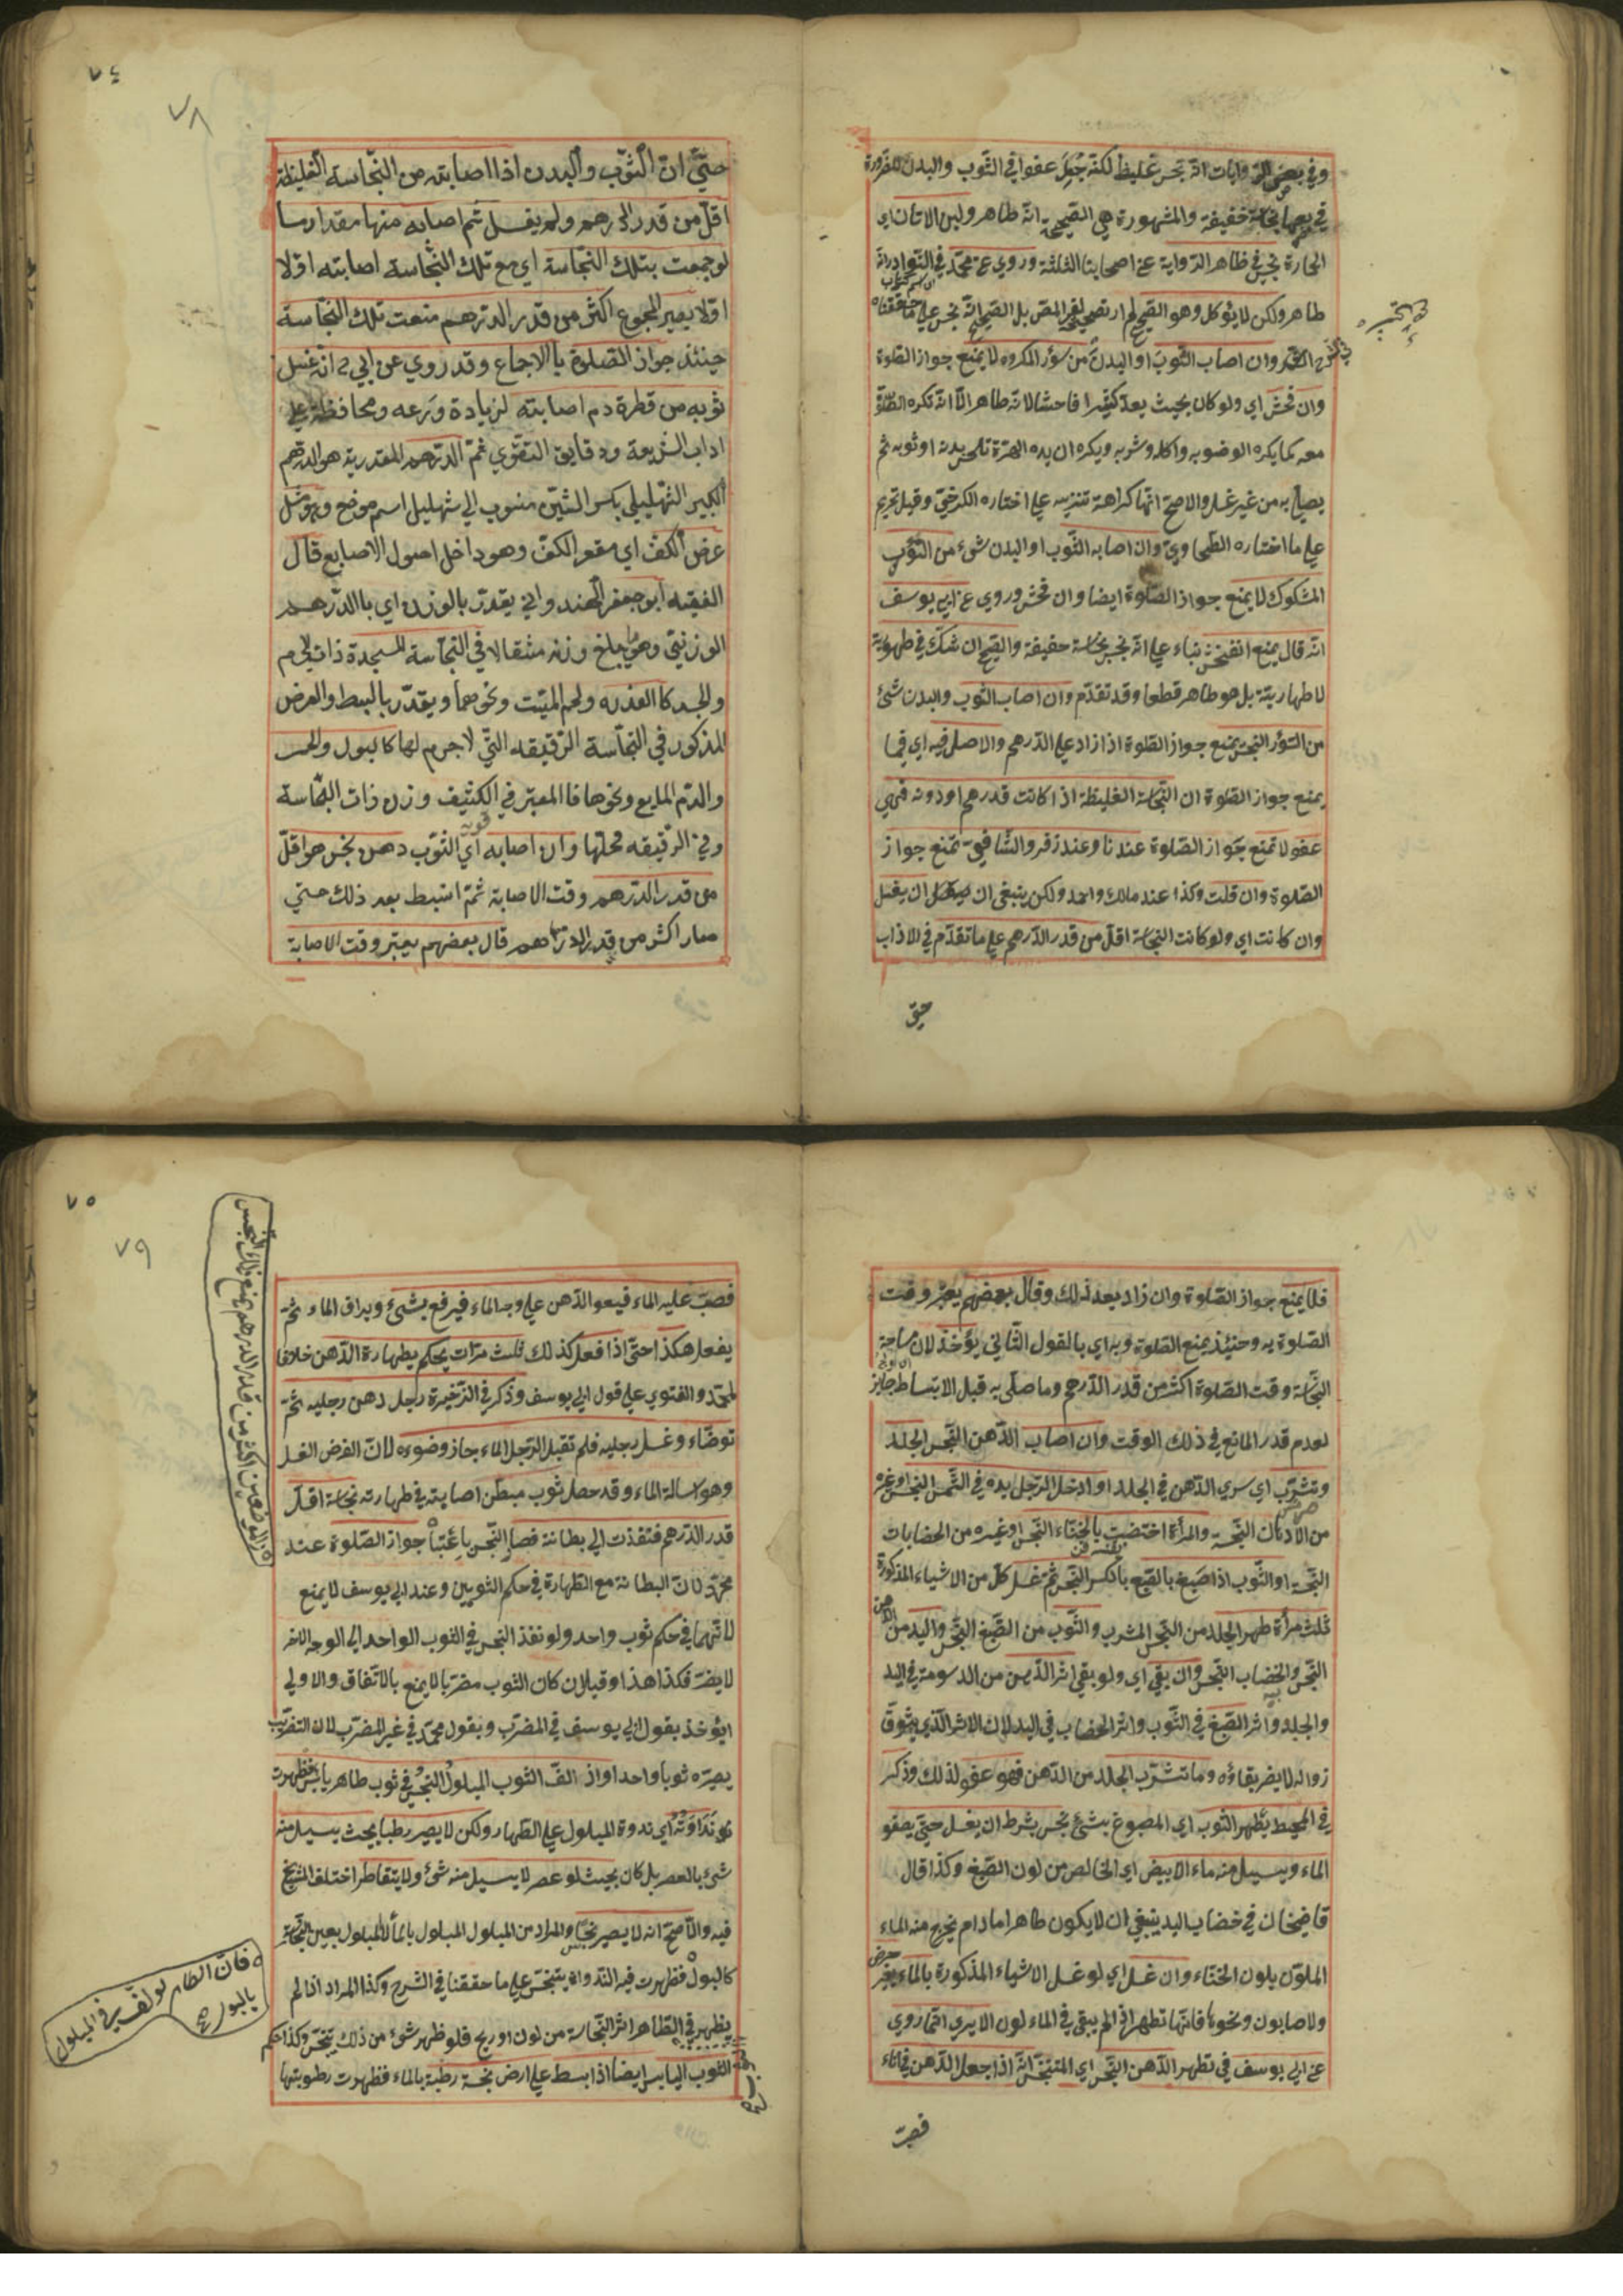 وفي بعض الروايات انه نجس غليظ لكنه جعل عفوا في الثوب والبدن للضرورة
في بعضها نجاسة خفيفة والمشهورة هي الصحيحة انه طاهر ولبن الاتان اي
الحمارة نجس في ظاهر الرواية عن اصحابنا الثلثة وروي عن محمد في النوادر انه
طاهر ولكن لا يؤكل وهو الصحيح لم ار تصحيحه لغير المص بل الصحيح انه نجس علي ما حققناه
في الشرح وان اصاب الثوب او البدن من سؤر المكروه لا يمنع جواز الصلوة
وان فحش اي ولو كان بحيث يعد كثيرا فاحشا لانه طاهر الا انه تكره الصلوة
معه كما يكره الوضو به واكله وشربه ويكره ان يده الهرة تلحس بدنه او ثوبه ثم
يصلي به من غير غسل والاصح انها كراهة تنزيه علي اختاره الكرخي وقيل تحريم
علي ما اختاره الطحاوي وان اصابه الثوب او البدن شئ من السؤر
المشكوك لا يمنع جواز الصلوة ايضا وان فحش وروي عن ابي يوسف
انه قال يمنع ان فحش بناء علي انه نجس نجاسة خفيفة والصحيح ان شك في طهورية
لا طهاريته بل هو طاهر قطعا وقد تقدم وان اصاب الثوب والبدن شئ
من السؤر النجس يمنع جواز الصلوة اذا زاد علي الدرهم والاصل فيه اي فيما
يمنع جواز الصلوة ان النجاسة الغليظة اذا كانت قدر درهم او دونه فهي
عفو لا تمنع جواز الصلوة عندنا وعند زفر والشافعي تمنع جواز
الصلوة وان قلت وكذا عند مالك واحمد ولكن ينبغي ان يغسل
وان كانت اي ولو كانت النجاسة اقل من قدر الدرهم علي ما تقدم في الاداب
حتي
٧٤
٧٨
حتي ان الثوب والبدن اذا اصابته من النجاسة الغليظة
اقل من قدر الدرهم ولم يغسل ثم اصابه منها مقدار ما
لو جمعت بتلك النجاسة اي مع تلك النجاسة اصابته اولا
اولا يصير المجموع اكثر من قدر الدرهم منعت تلك النجاسة
حينئذ جواز الصلوة بالاجماع وقد روي عن ابي ح انه غسل
ثوبه من قطرة دم اصابته لزيادة ورعه ومحافظة علي
اداب الشريعة ودقايق التقوي ثم الدرهم المقدر به هو الدرهم
الكبير الشهليلي بكسر الشين منسوب الي شهليل اسم موضع وهو مثل
عرض الكف اي مقعر الكف وهو داخل اصول الاصابع قال
الفقيه ابو جعفر الهندواني يقدر بالوزن اي با الدرهم
الوزنيتي وهو ما يبلغ وزنه مثقالا في النجاسة المتجسدة ذات لجرم
والجسد كا العذره ولحم الميت ونحوهما ويقدر بالبسط والعرض
المذكور في النجاسة الرقيقه التي لا جرم لها كالبول والخمر
والدم المايع ونحوها فا المعتبر في الكثيف وزن ذات النجاسة
وفي الرقيقه محلها وان اصابه اي الثوب دهن نجس هو اقل
من قدر الدرهم وقت الاصابة ثم انبسط بعد ذلك حتي
صار اكثر من قدر الدرهم قال بعضهم يعتبر وقت الاصابة
فلا يمنع جواز الصلوة وان زاد بعد ذلك وقال بعضهم يعتبر وقت
الصلوة به وحينئذ يمنع الصلوة وبه اي بالقول الثاني يؤخذ لان مساحة
النجاسة وقت الصلوة اكثر من قدر الدرهم وما صلي به قبل الانبساط جايز
لعدم قدر المانع في ذلك الوقت وان اصاب الدهن النجس الجلد
وتشرب اي سري الدهن في الجلد او ادخل الرجل يده في السمن النجس او غيره
من الادهان النجسة والمرأة اختضبت بالحناء النجس او غيره من الخضابات
النجسة او الثوب اذا صبغ بالصبغ بالكسر النجس ثم غسل كل من الاشياء المذكورة
ثلث مرأة طهر الجلد من النجس المشرب والثوب من الصبغ النجس واليد من الدهن
النجس والخضاب النجس وان بقي اي ولو بقي اثر الدهن من الدسومة في اليد
والجلد واثر الصبغ في الثوب واثر الخضاب في اليد لان الاثر الذي يشق
زواله لا يضر بقاؤه وما تشرب الجلد من الدهن فهو عفو لذلك وذكر
في المحيط يطهر الثوب اي المصبوغ بشئ نجس بشرط ان يغسل حتي يصفو
الماء ويسيل منه ماء الابيض اي الخالص من لون الصبغ وكذا قال
قاضيخان في خضاب اليد ينبغي ان لا يكون طاهرا ما دام يخرج منه الماء
الملون بلون الحناء وان غسل اي لو غسل الاشياء المذكورة بالماء بغير حرض
ولا صابون ونحوه فانها تطهر اذ لم يبقي في الماء لون الا يري انه روي
عن ابي يوسف في تطهر الدهن النجس اي المتنجس انه اذا جعل الدهن في اناء
فصب
٧٥
٧٩
فصب عليه الماء فيعلو الدهن علي وجه الماء فيرفع بشئ ويراق الماء ثم
يفعل هكذا حتي اذا فعل كذلك ثلث مرات يحكم بطهارة الدهن خلافا
لمحمد والفتوي علي قول ابي يوسف وذكر في الذخيرة رجل دهن رجليه ثم
توضاء وغسل رجليه فلم تقبل الرجل الماء جاز وضوءه لان الفرض الغسل
وهو اسالة الماء وقد حصل ثوب مبطن اصابته في طهارته نجاسة اقل
قدر الدرهم فنفذت الي بطانة فصار النجس جواز الصلوة عند
محمد لان البطانة مع الظهارة في حكم الثوبين وعند ابي يوسف لا يمنع
لانهما في حكم ثوب واحد ولو نفذ النجس في الثوب الواحد الي الوجه الاخر
لا يضر فكذا هذا وقيل ان كان الثوب مضربا لا يمنع بالاتفاق والاولي
ايؤخذ بقول ابي يوسف في المضرب وبقول محمد في غير المضرب لان التضريب
يصيره ثوبا واحدا واذ الف الثوب المبلول النجس في ثوب طاهر يابس فظهرت
نداوته اي ندوة المبلول علي الطهار ولكن لا يصير رطبا بحيث يسيل منه
شئ بالعصر بل كان بحيث لو عصر لا يسيل منه شئ ولا يتقاطر اختلف المشيخ
فيه والاصح انه لا يصير نجسا والمراد من المبلول المبلول بالماء لا المبلول بعين النجاسة
كالبول فظهرت فيه النداوة يتنجس علي ما حققنا في الشرح وكذا المراد اذا لم
يظهر في الطاهر اثر النجاسة من لون او ريح فلو ظهر شئ من ذلك يتنجس وكذا حكم
الثوب اليابس ايضا اذا بسط علي ارض نجسة رطبة بالماء فظهرت رطوبتها
فان الطاهر لو لف في المبلول
بالبول